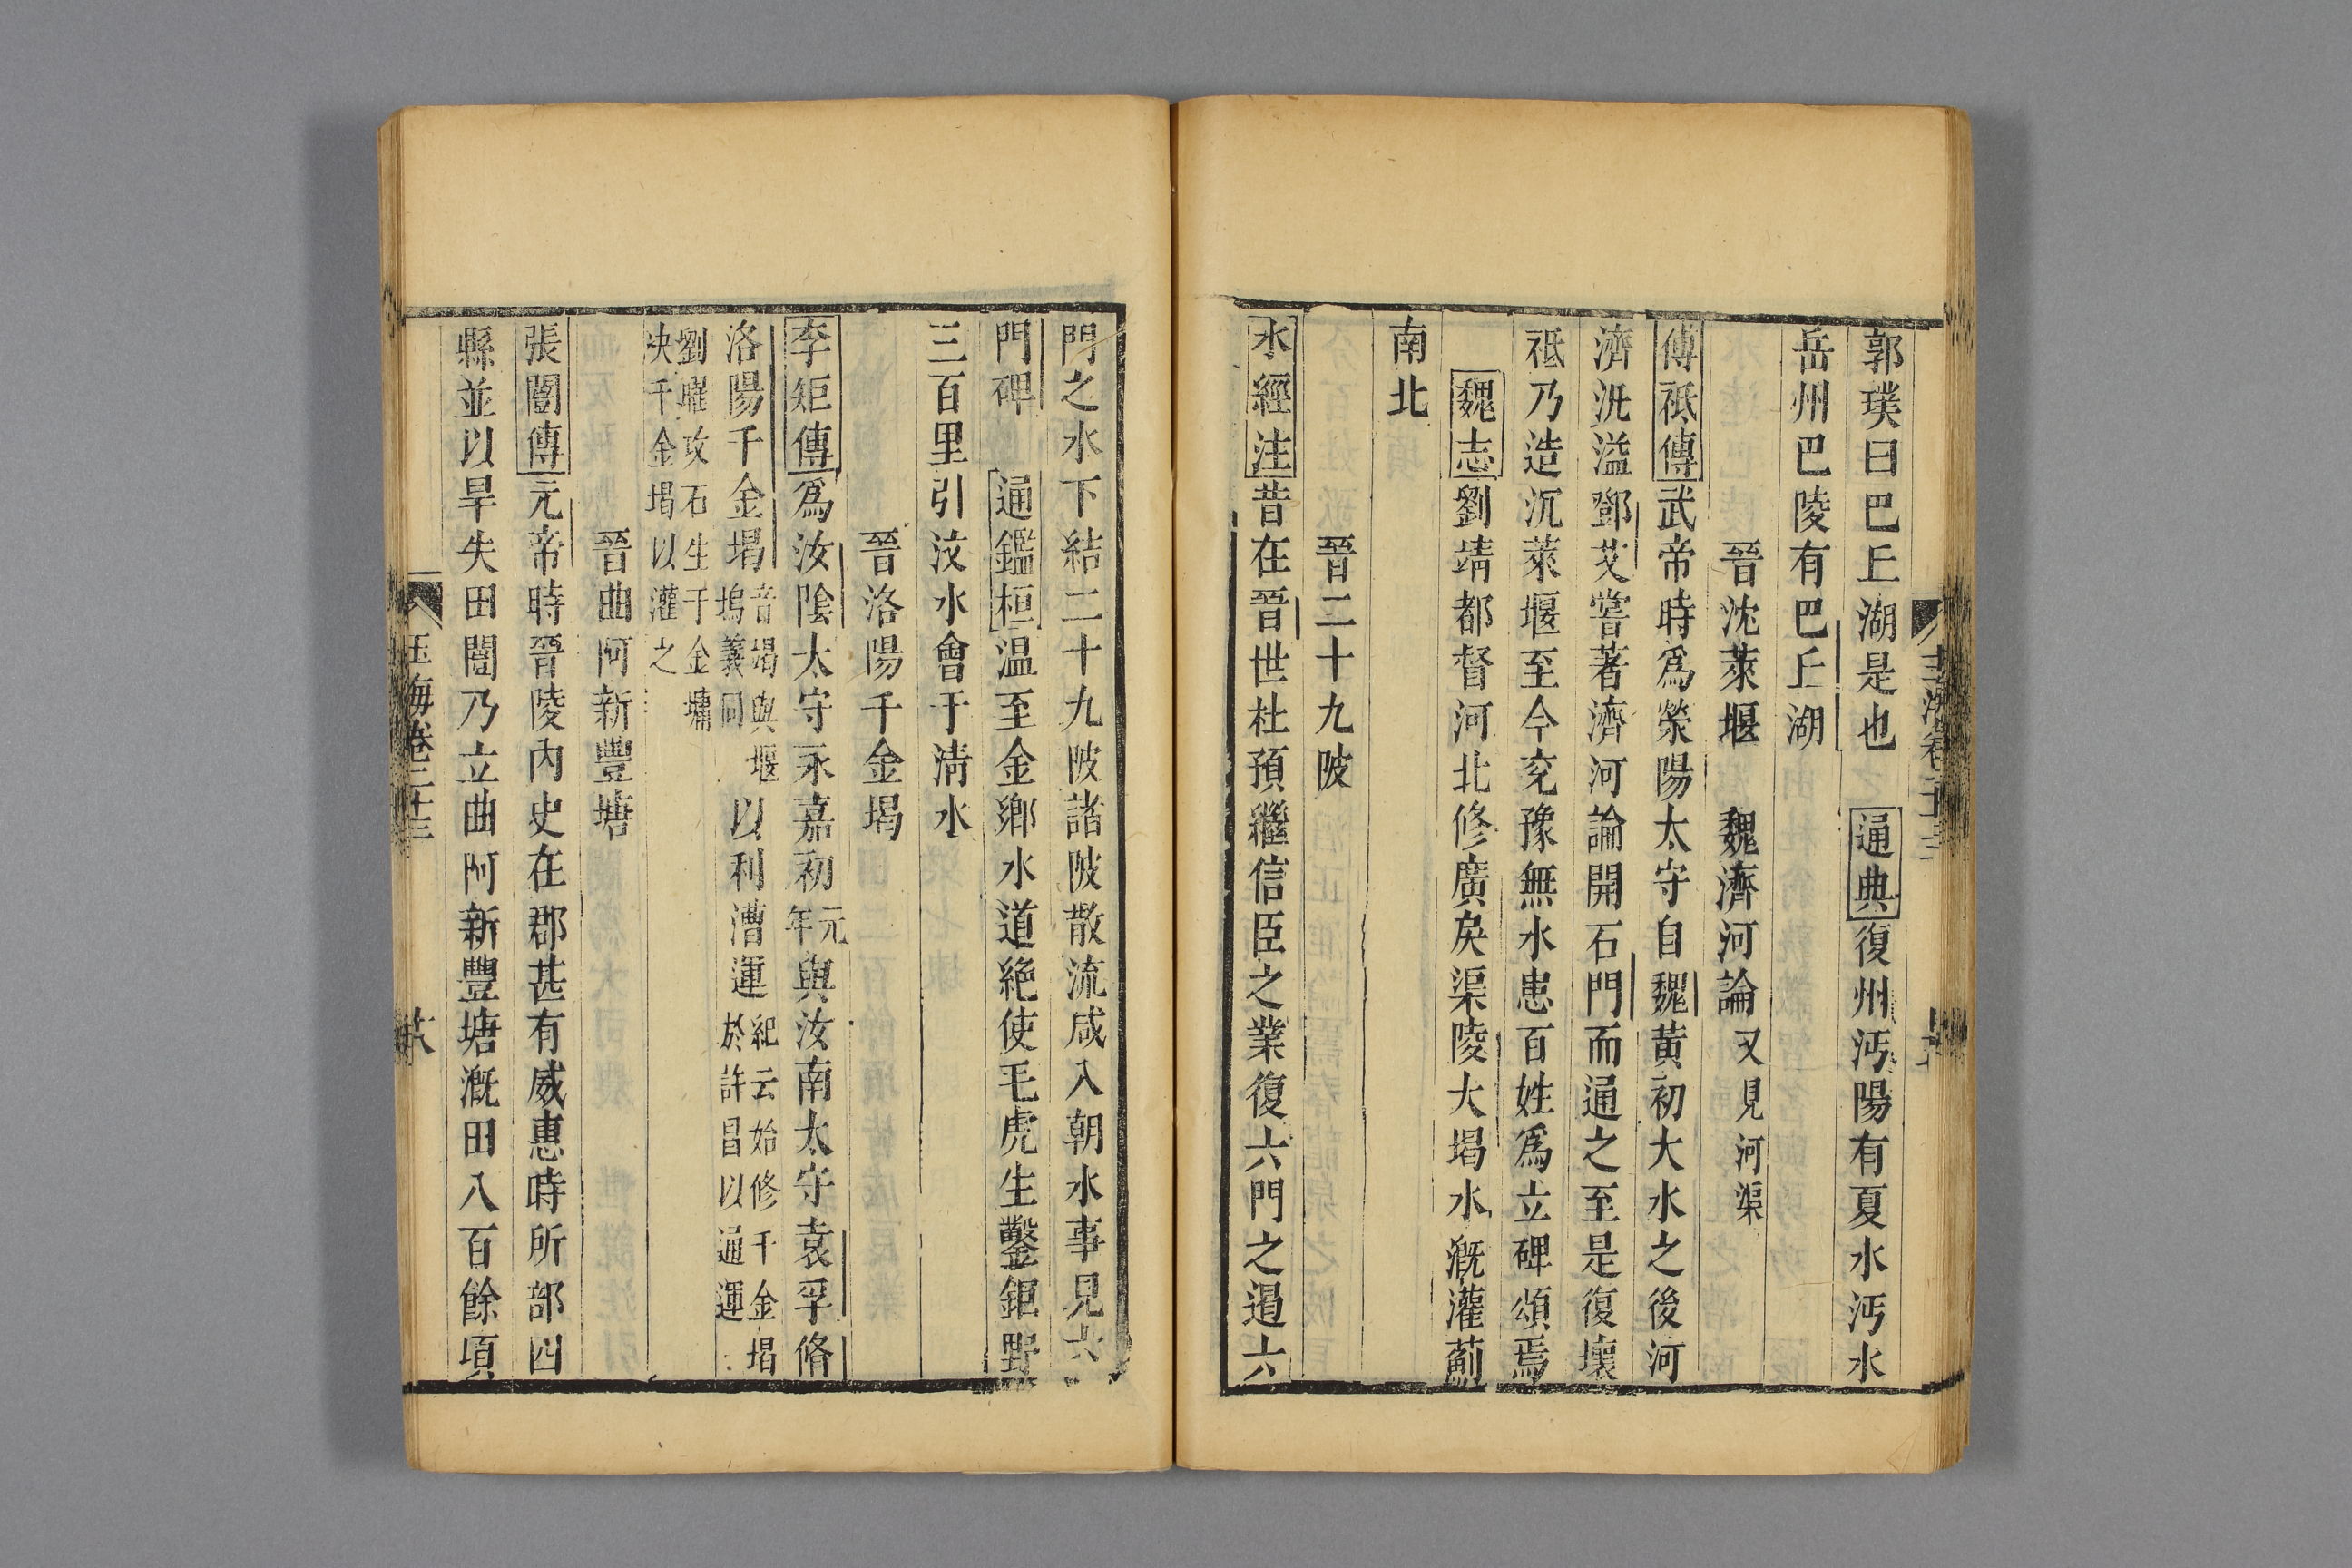 郭璞曰巴丘湖是也　通典復州沔陽有夏水沔水
岳州巴陵有巴丘湖
晉沈萊堰　魏濟河論又見河渠
傅祗傳武帝時爲滎陽太守自魏黃初大水之後河
濟汎溢鄧艾嘗著濟河論開石門而通之至是復壞
祗乃造沉萊堰至今兗豫無水患百姓爲立碑頌焉
魏志劉靖都督河北修廣戾渠陵大堨水漑灌薊
南北
晉二十九陂
水經注昔在晉世杜預繼信臣之業復六門之遏六
門之水下結二十九陂諸陂散流咸入朝水事見六
門碑　通鑑桓温至金鄉水道絶使毛虎生鑿鉅野
三百里引汶水會于清水
晉洛陽千金堨
李矩傳爲汝陰太守永嘉初元年與汝南太守袁孚脩
洛陽千金堨音竭與堰塢義同以利漕運紀云始修千金堨於許昌以通運
劉曜攻石生于金墉決千金堨以灌之
晉曲阿新豐塘
張闓傳元帝時晉陵內史在郡甚有威惠時所部四
縣並以旱失田闓乃立曲阿新豐塘漑田八百餘頃
玉海卷二十三